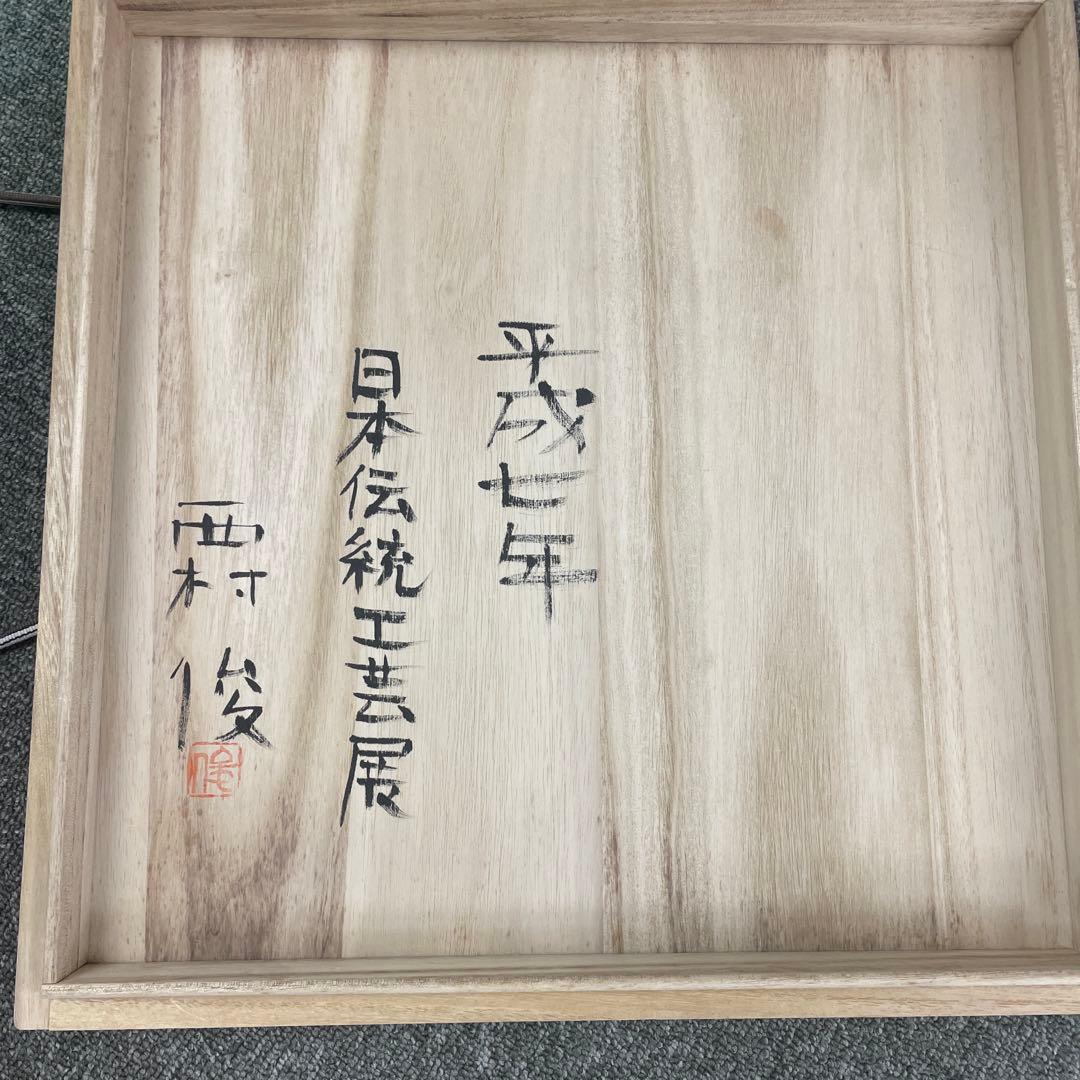 平成七年
日本伝統工芸展
西村俊
俊